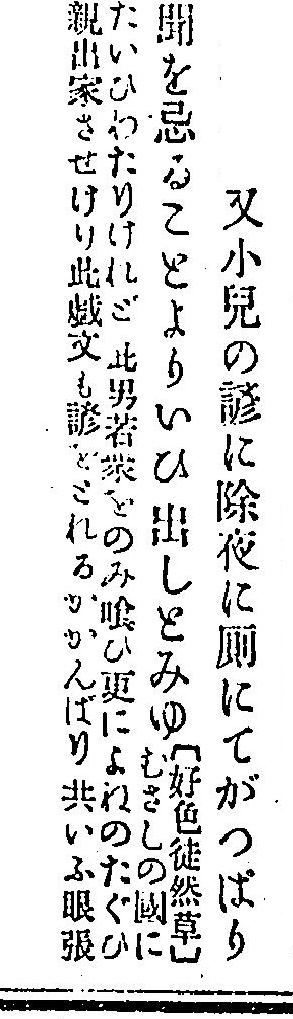 又小兒の諺に除夜に厠にてがつぱり
聞を忌ることよりいひ出しとみゆ【好色徒然草】むさしの國に
たいひわたりけれど此男若衆をのみ喰ひ更によねのたぐひ
親出家させけり此戯文も諺をとれるかかんばり共いふ眼張